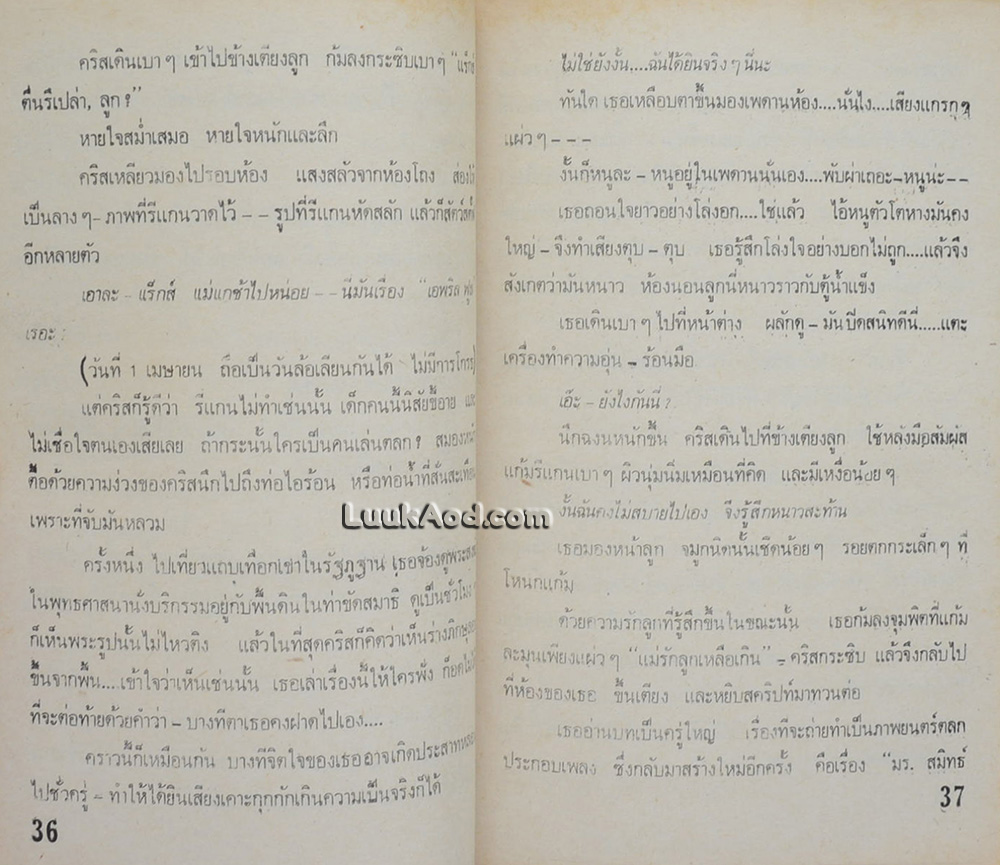 คริสเดินเบา ๆ เข้าไปข้างเตียงลูก ก้มลงกระซิบเบา ๆ "แร็กส์
ตื่นรึเปล่า, ลูก ?"
หายใจสม่ำเสมอ หายใจหนักและลึก
คริสเหลียวมองไปรอบห้อง แสงสลัวจากห้องโถง ส่องให้
เป็นลาง ๆ - ภาพที่รีแกนวาดไว้ - - รูปที่รีแกนหัดสลัก แล้วก็สัตว์สตั๊ฟ
อีกหลายตัว
เอาละ - แร็กส์ แม่แกช้าไปหน่อย - - นี่มันเรื่อง "เอพริล ฟูล
เรอะ ?
(วันที่ 1 เมษายน ถือเป็นวันล้อเลียนกันได้ ไม่มีการโกรธ)
แต่คริสก็รู้ดีว่า รีแกนไม่ทำเช่นนั้น เด็กคนนี้นิสัยขี้อาย และ
ไม่เชื่อใจตนเองเสียเลย ถ้ากระนั้นใครเป็นคนเล่นตลก ? สมอง
ตื้อด้วยความง่วงของคริสนึกไปถึงท่อไอร้อน หรือท่อน้ำที่สั่นสะเทือน
เพราะที่จับมันหลวม
ครั้งหนึ่ง ไปเที่ยวแถบเทือกเขาในรัฐภูฐาน เธอจ้องดูพระสงฆ์
ในพุทธศาสนานั่งบริกรรมอยู่กับพื้นดินในท่าขัดสมาธิ ดูเป็นชั่วโมง
ก็เห็นพระรูปนั้นไม่ไหวติง แล้วในที่สุดคริสก็คิดว่าเห็นร่างภิกษุ
ขึ้นจากพื้น....เข้าใจว่าเห็นเช่นนั้น เธอเล่าเรื่องนี้ให้ใครฟัง ก็อดไม่ได้
ที่จะต่อท้ายด้วยคำว่า - บางทีตาเธอคงฝาดไปเอง....
คราวนี้ก็เหมือนกัน บางทีจิตใจของเธออาจเกิดประสาทหลอน
ไปชั่วครู่ - ทำให้ได้ยินเสียงเคาะกุกกักเกินความเป็นจริงก็ได้
36
ไม่ใช่ยังงั้น....ฉันได้ยินจริง ๆ นี่นะ
ทันใด เธอเหลือบตาขึ้นมองเพดานห้อง....นั่นไง....เสียงแกรก ๆ
แผ่ว ๆ - - -
งั้นก็หนูละ - หนูอยู่ในเพดานนั่นเอง....พับผ่าเถอะ-หนูน่ะ - -
เธอถอนใจยาวอย่างโล่งอก....ใช่แล้ว ไอ้หนูตัวโตหางมันคง
ใหญ่ - จึงทำเสียงตุบ - ตุบ เธอรู้สึกโล่งใจอย่างบอกไม่ถูก....แล้วจึง
สังเกตว่ามันหนาว ห้องนอนลูกนี่หนาวราวกับตู้น้ำแข็ง
เธอเดินเบา ๆ ไปที่หน้าต่าง ผลักดู - มันปิดสนิทดีนี่.....แตะ
เครื่องทำความอุ่น - ร้อนมือ
เอ๊ะ - ยังไงกันนี่ ?
นึกฉงนหนักขึ้น คริสเดินไปที่ข้างเตียงลูก ใช้หลังมือสัมผัส
แก้มรีแกนเบา ๆ ผิวนุ่มนิ่มเหมือนที่คิด และมีเหงื่อน้อย ๆ
งั้นฉันคงไม่สบายไปเอง จึงรู้สึกหนาวสะท้าน
เธอมองหน้าลูก จมูกนิดนั้นเชิดน้อย ๆ รอยตกกระเล็ก ๆ ที่
โหนกแก้ม
ด้วยความรักลูกที่รู้สึกขึ้นในขณะนั้น เธอก้มลงจุมพิตที่แก้ม
ละมุนเพียงแผ่ว ๆ "แม่รักลูกเหลือเกิน" - คริสกระซิบ แล้วจึงกลับไป
ที่ห้องของเธอ ขึ้นเตียง และหยิบสคริปท์มาทวนต่อ
เธออ่านบทเป็นครู่ใหญ่ เรื่องที่จะถ่ายทำเป็นภาพยนตร์ตลก
ประกอบเพลง ซึ่งกลับมาสร้างใหม่อีกครั้ง คือเรื่อง "มร. สมิทธ์
37
LuukAod.com